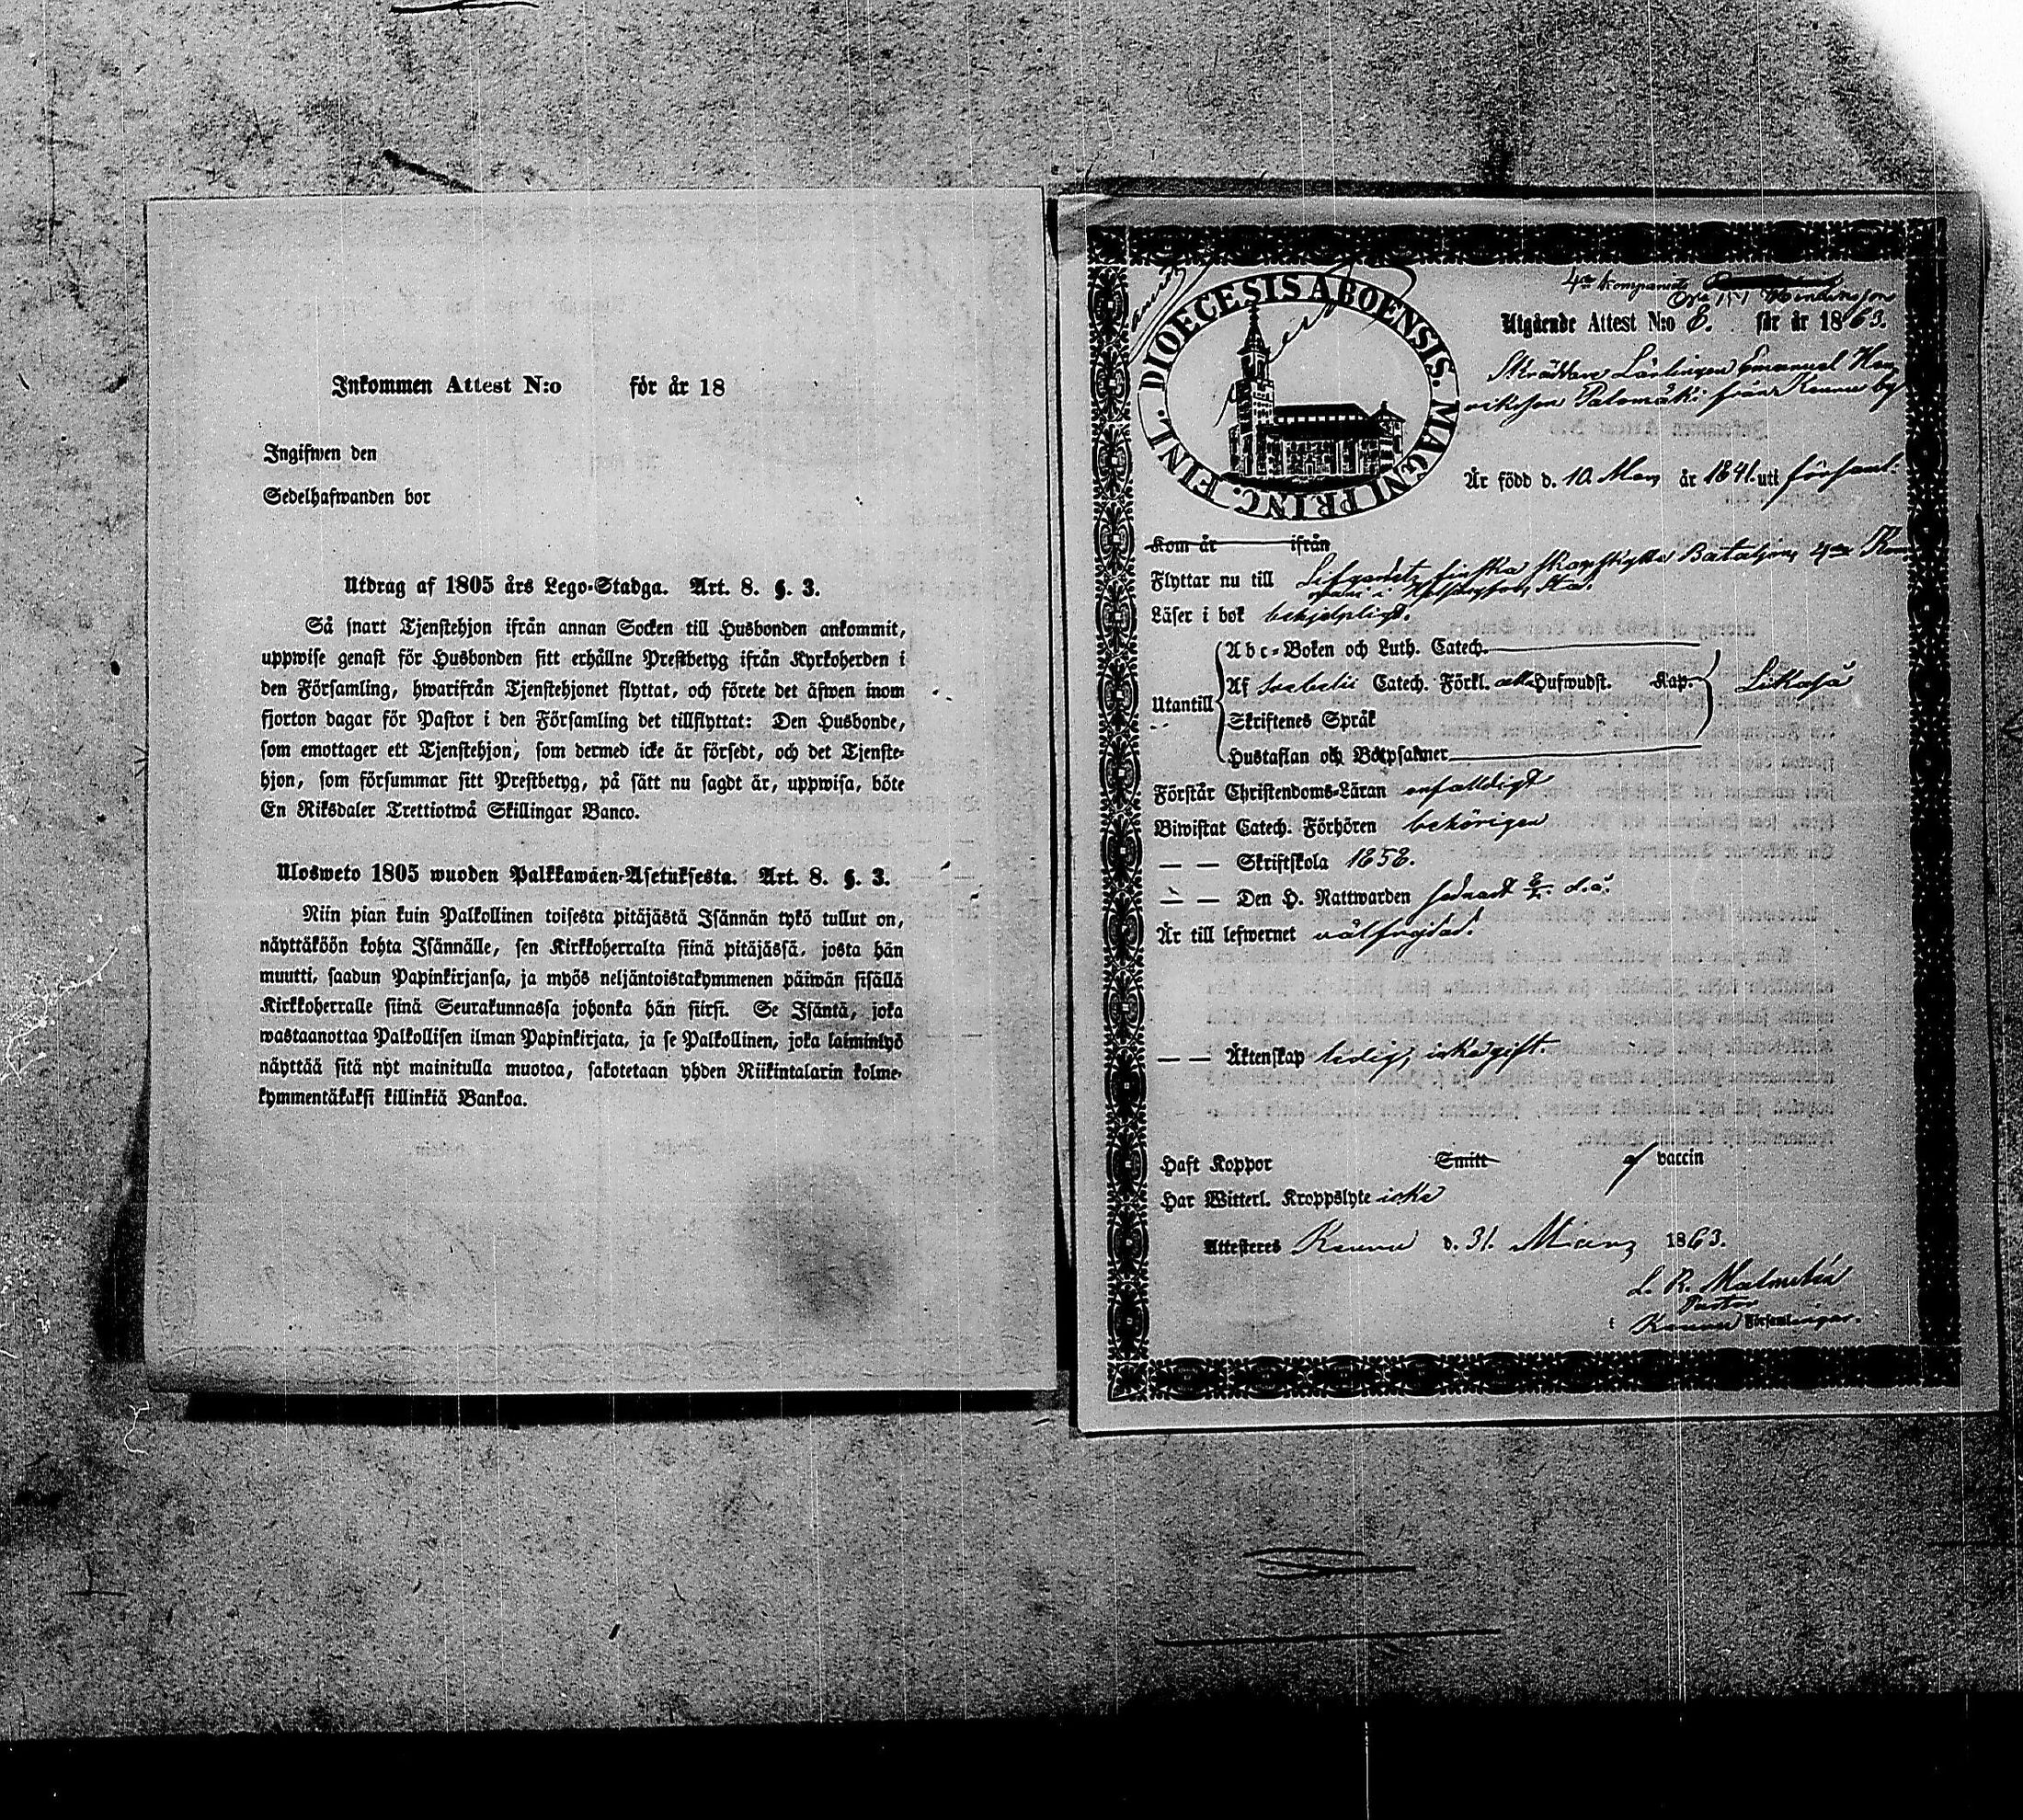 Inkommen Attest N:o för år 18
Ingifwen den
Sedelhafwanden bor
Utdrag af 1805 års Lego-Stadga. Art. 8. §. 3.
Så snart Tjenstehjon ifrån annan Socken till Husbonden ankommit,
uppwise genast för Husbonden sitt erhållne Prestbetyg ifrån Kyrkoherden i
den Församling, hwarifrån Tjenstehjonet flyttat, och förete det äfwen inom
fjorton dagar för Pastor i den Församling det tillflyttat: Den Husbonde,
som emottager ett Tjenstehjon, som dermed icke är försedt, och det Tjenste-
hjon, som försummar sitt Prestbetyg, på sätt nu sagdt är, uppwisa, böte
En Riksdaler Trettiotwå Skillingar Banco.
Ulosweto 1805 wuoden Palkkawäen-Asetuksesta. Art. 8. §. 3.
Niin pian kuin Palkollinen toisesta pitäjästä Isännän tykö tullut on,
näyttäköön kohta Isännälle, sen Kirkkoherralta siinä pitäjässä, josta hän
muutti, saadun Papinkirjansa, ja myös neljäntoistakymmenen päiwän sisällä
Kirkkoherralle siinä Seurakunnassa johonka hän siirsi. Se Isäntä, joka
wastaanottaa Palkollisen ilman Papinkirjata, ja se Palkollinen, joka laiminlyö
näyttää sitä nyt mainitulla muotoa, sakotetaan yhden Riikintalarin kolme-
kymmentäkaksi killinkiä Bankoa.
DIOECESIS ABOENSIS. MAGNI PRINC. FINL.
4de Kompaniets
Utgående Attest N:o 8. för år 1863.
Skräddare Lärlingen Emanuel Hen
riksson Palomäki från Kennu by
Är född d. 10. Mars år 1841. uti församl:
Kom år ifrån
Flyttar nu till Lifgardets finska skarpskytte Bataljons 4de Kom
pani i Helsingfors stad.
Läser i bok behjelpligt.
Utantill
Abc-Boken och Luth. Catech.
Af Svebelii Catech. Förkl. alla Hufwudst. Kap. Likaså
Skriftenes Språk
Hustaflan och Botpsalmer
Förstår Christendoms-Läran enfalldigt
Biwistat Catech. Förhören behörigen
— — Skriftskola 1858.
— — Den H. Nattwarden sednast d. å.
Är till lefwernet välfrejdad.
— — Äktenskap ledig, icke gift.
Haft Koppor Smitt af vaccin
Har Witterl. Kroppslyte icke
Attesteres d. 31. Mars 1863.
L. R. Malmstén
Pastor
i Församlingar.